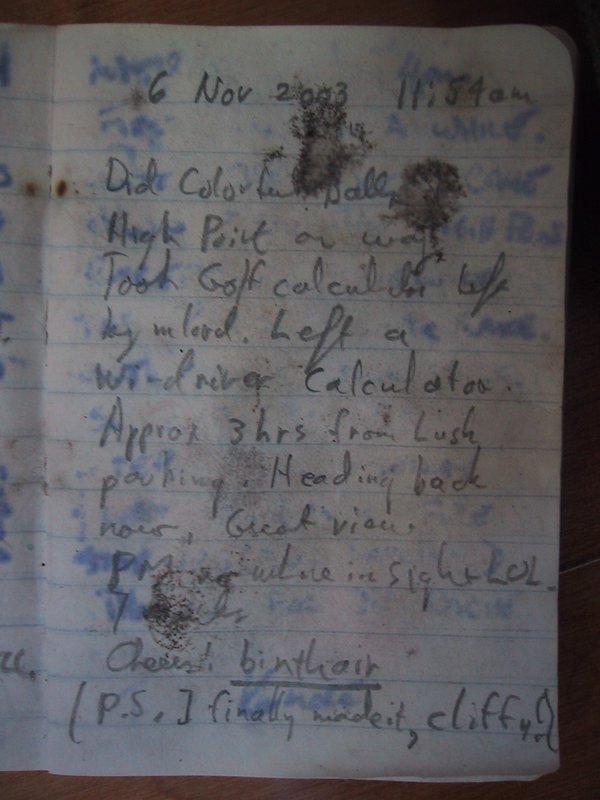 6 Nov 2003 11:54am
Did Colorful
High Point on way
Took Golf calculator left
by mlord. Left a
windriver calculator.
Approx 3hrs from Lush
parking. Heading back
now, Great view.
PM nowhere in sight LOL.
Cheers! binthair
[P.S.] finally made it, cliffy!